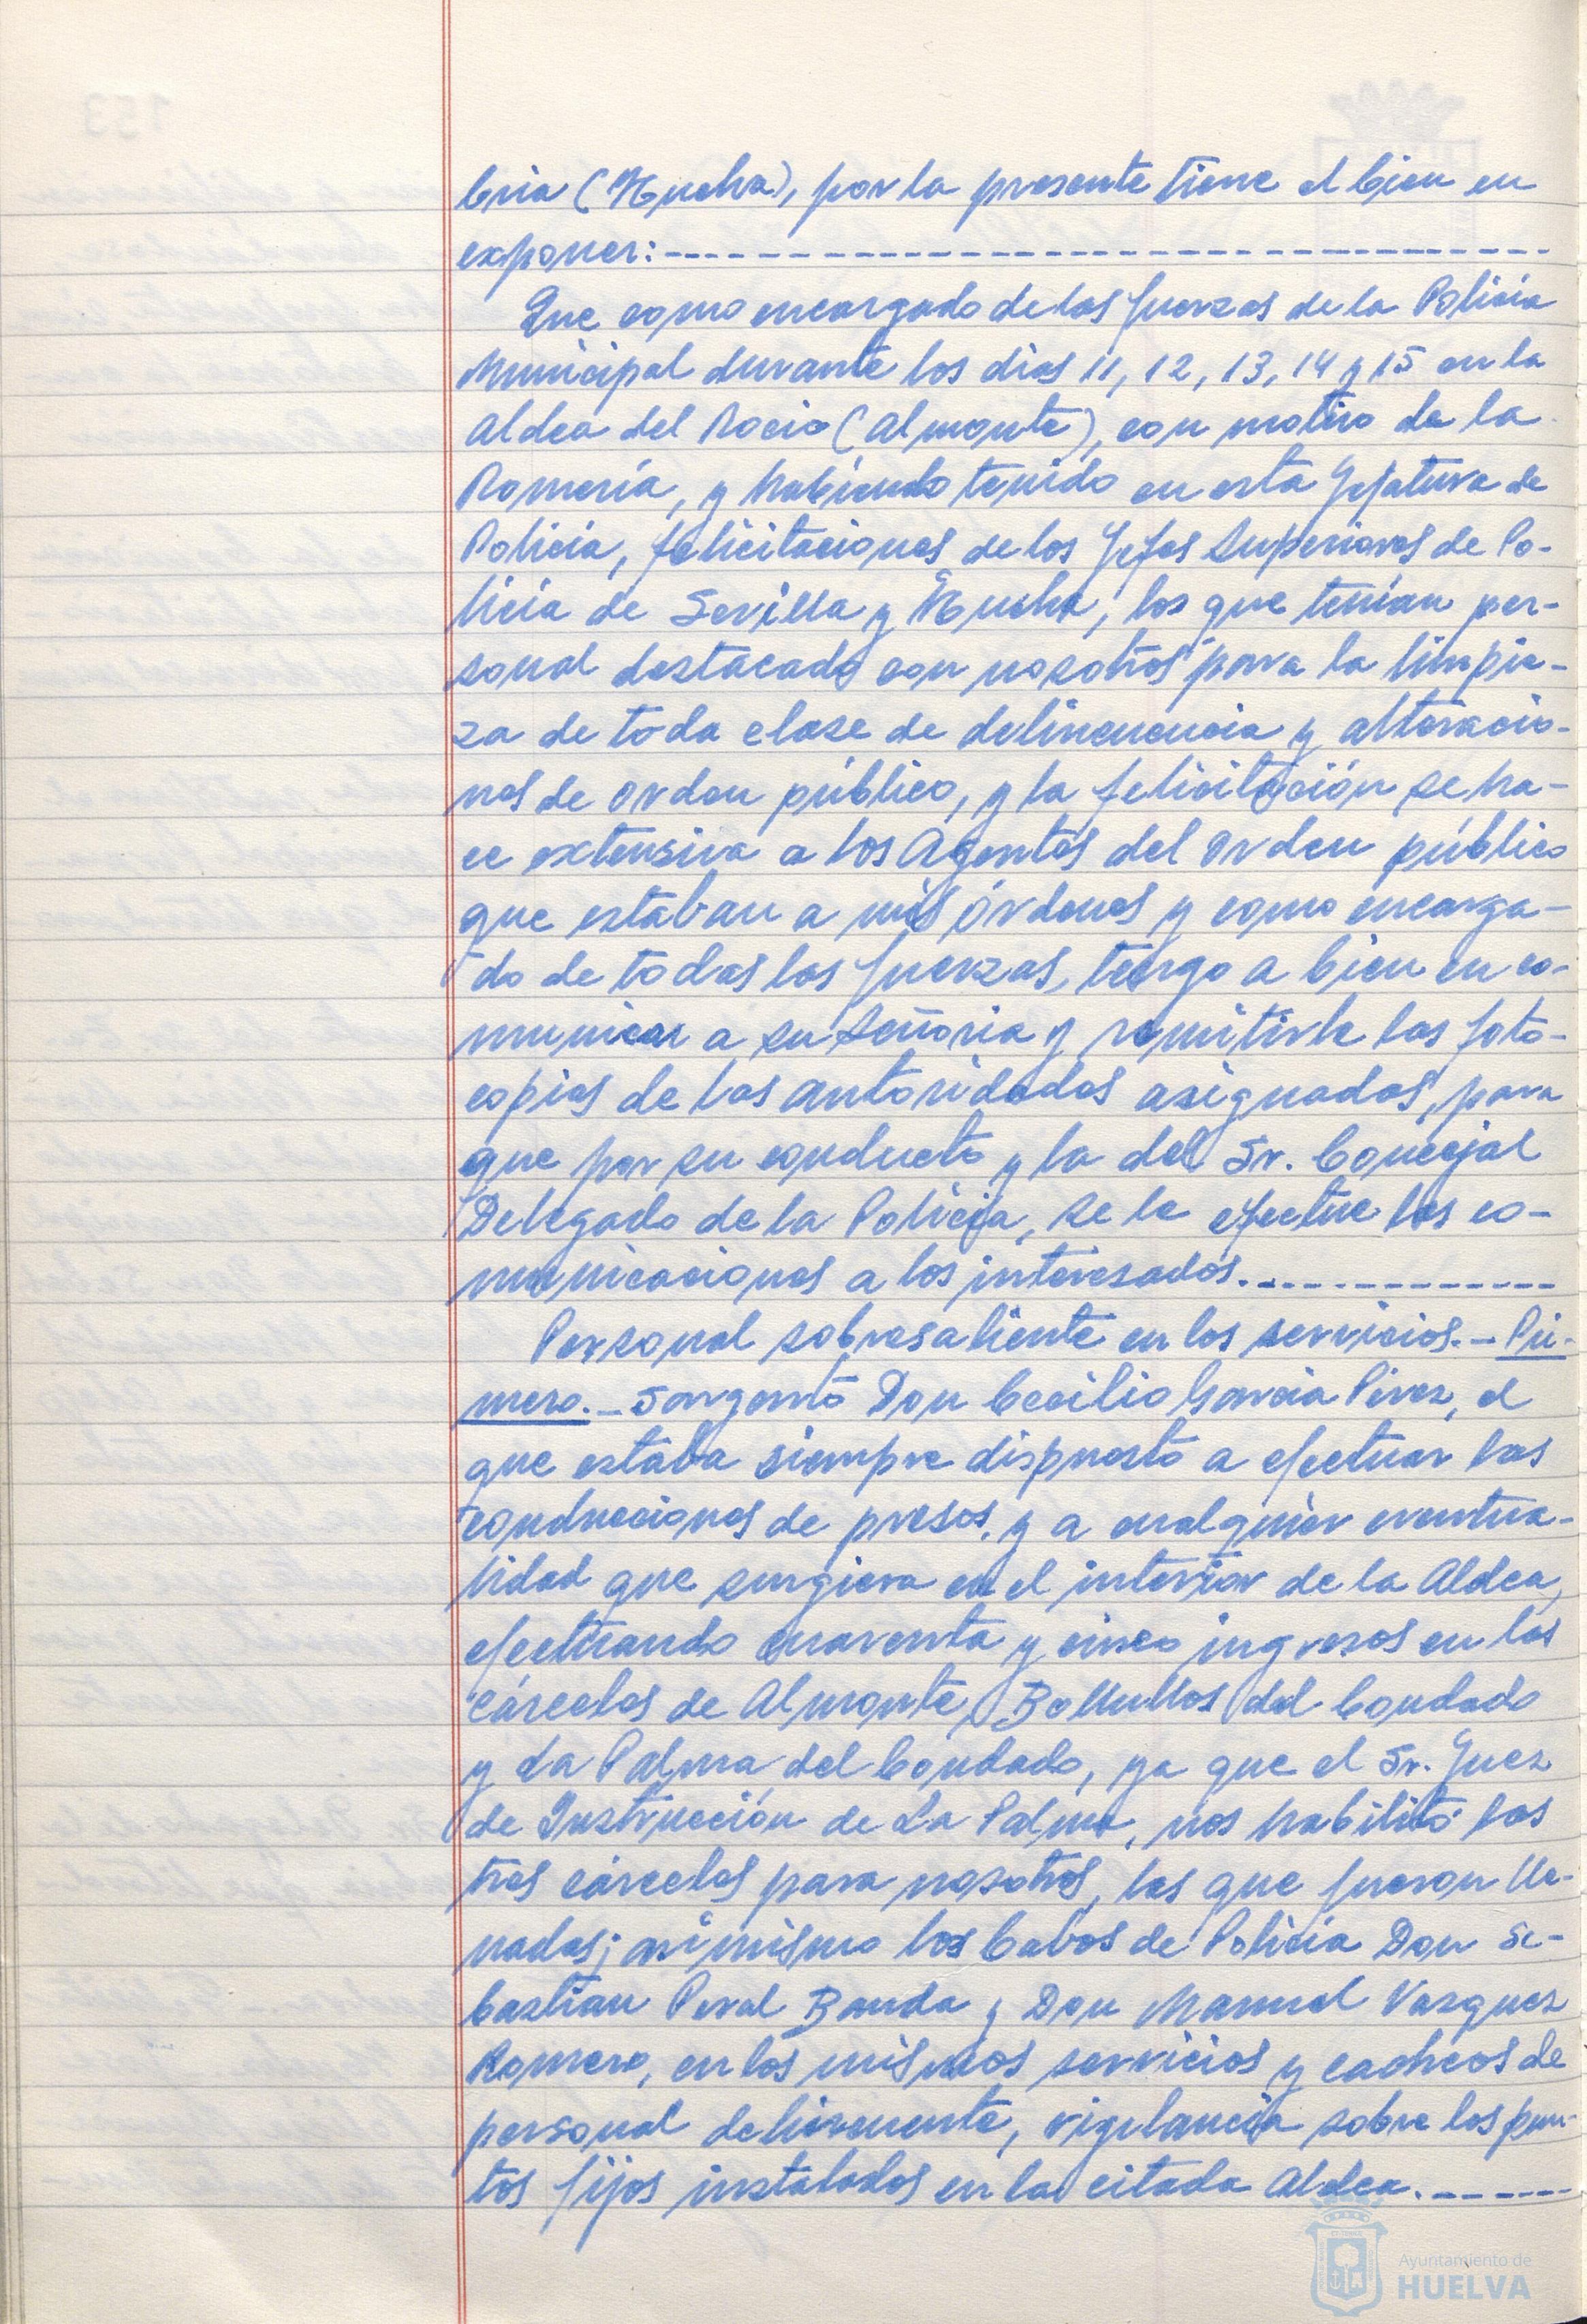 bria (Huelva), por la presente tiene el bien en
exponer:
Que como encargado de las fuerzas de la Policía
Municipal durante los dias 11, 12, 13, 14 y 15 en la
Aldea del Rocio (Almonte), con motivo de la
Romería, y habiendo tenido en esta Jefatura de
Policía, felicitaciones de los Jefes Superiores de Po-
licía de Sevilla y Huelva, los que tenían per-
sonal destacado con nosotros para la limpie-
za de toda clase de delincuencia y alteracio-
nes de orden público, y la felicitación se ha-
ce extensiva a los Agentes del orden público
que estaban a mis órdenes y como encarga-
do de todas las fuerzas, tengo a bien en co-
municar a su Señoria y remitirle las foto-
copias de las autoridades asignadas, para
que por su conducto y la del Sr. Concejal
Delegado de la Policía, se le efectue las co-
municaciones a los interesados.
Personal sobresaliente en los servicios.- Pri-
mero.- Sargento Don Cecilio García Pérez, el
que estaba siempre dispuesto a efectuar las
conducciones de presos, y a cualquier eventua-
lidad que surgiera en el interior de la Aldea,
efectuando cuarenta y cinco ingresos en las
cárceles de Almonte, Bollullos del Condado
y La Palma del Condado, ya que el Sr. Juez
de Instrucción de La Palma, nos habilitó las
tres cárceles para nosotros, las que fueron lle-
nadas; asimismo los Cabos de Policía Don Se-
bastian Peral Banda y Don Manuel Vazquez
Romero, en los mismos servicios y cacheos de
personal delincuente, vigilancia sobre los pun-
tos fijos instalados en la citada Aldea.
Ayuntamiento de
HUELVA